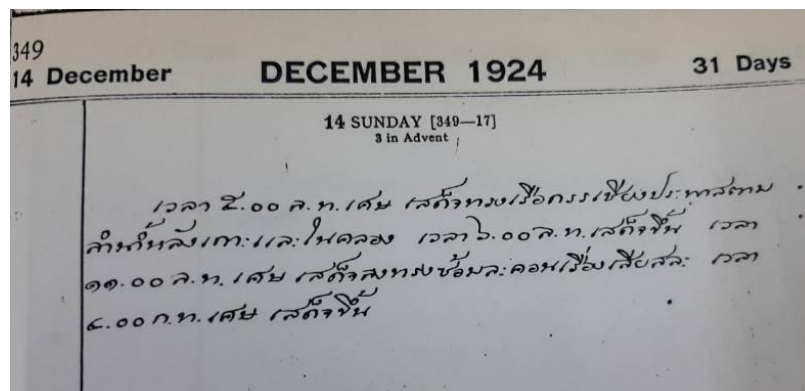 349
14 December DECEMBER 1924 31 Days
14 SUNDAY [349—17]
3 in Advent
เวลา ๕.๐๐ ล.ท.เศษ เสด็จทรงเรือกรรเชียงประพาสตาม
ลำน้ำหลังเกาะและในคลอง เวลา ๖.๐๐ ล.ท.เสด็จขึ้น เวลา
๑๑.๐๐ ล.ท.เศษ เสด็จลงทรงซ้อมละคอนเรื่องเสียสละ เวลา
๔.๐๐ ก.ท.เศษ เสด็จขึ้น